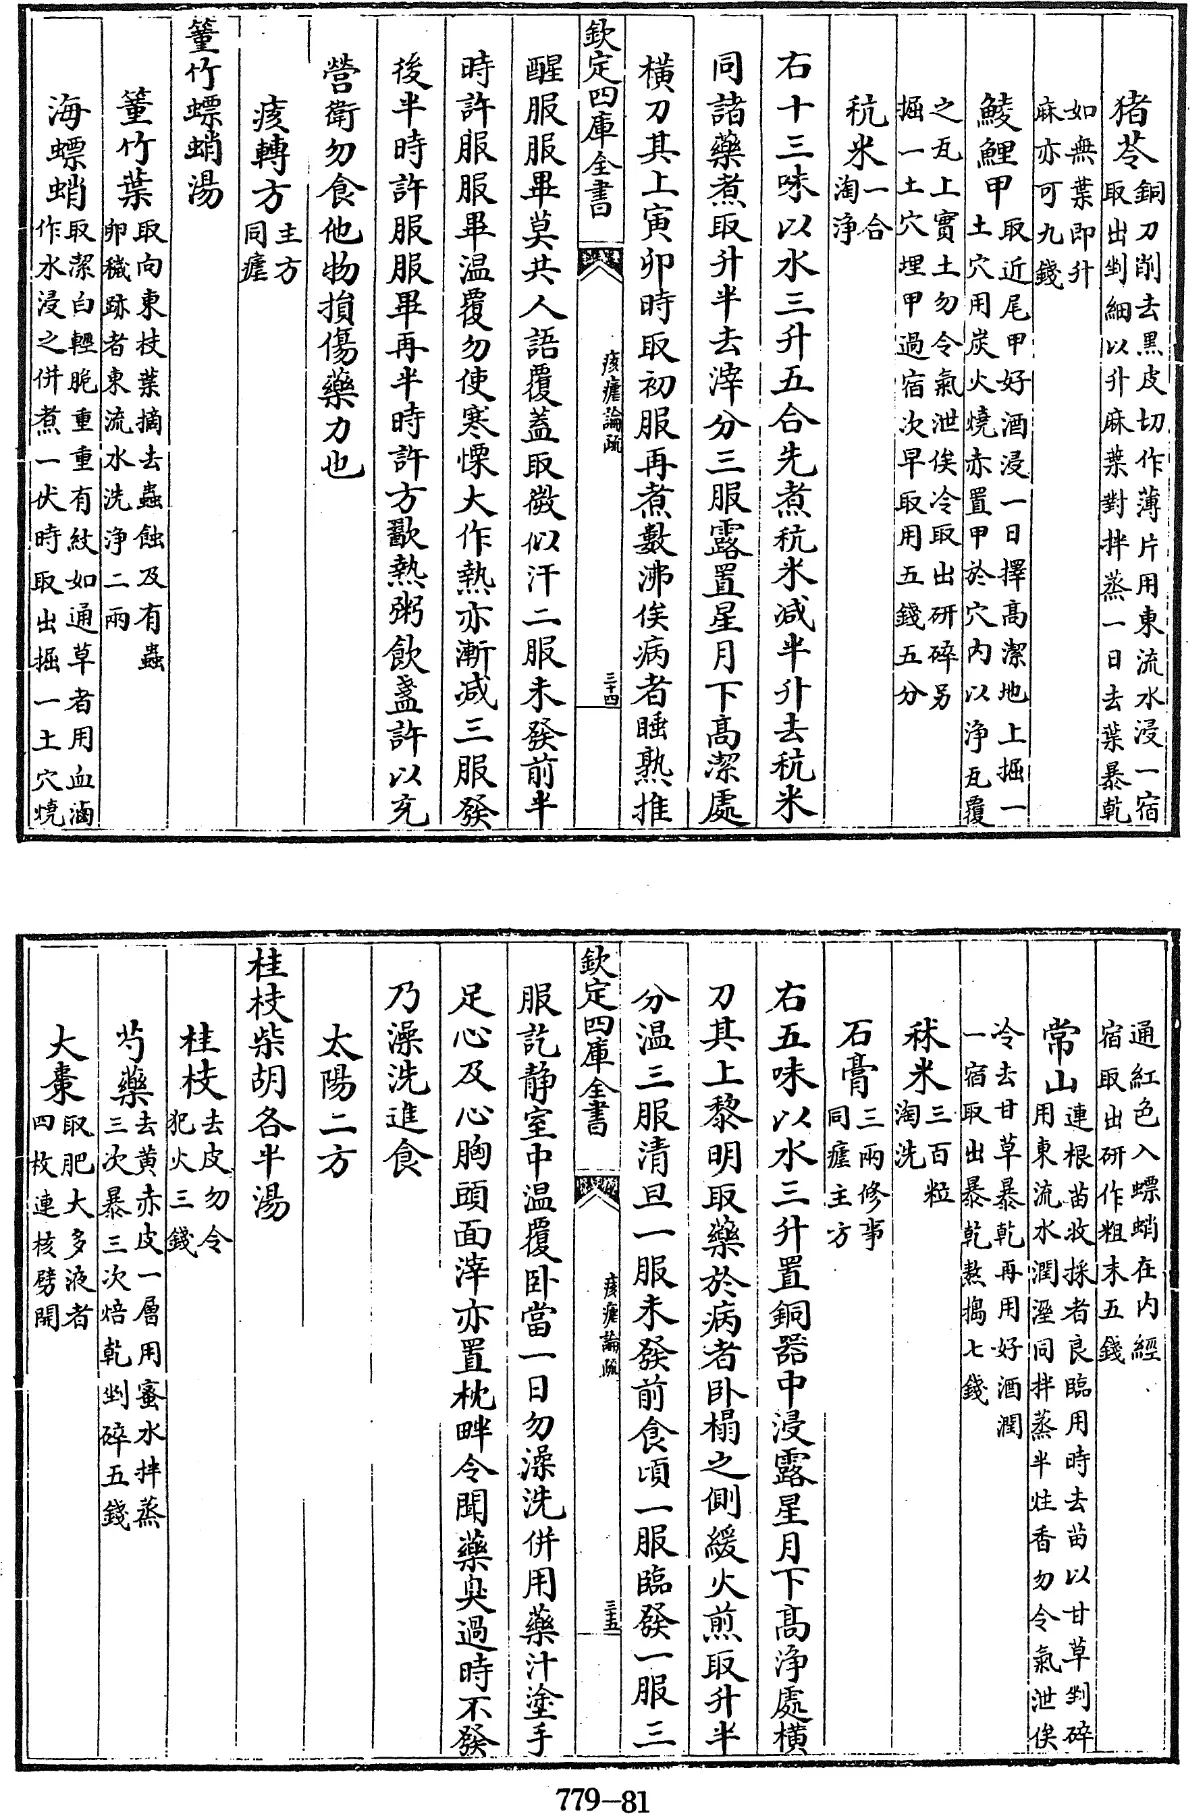 猪苓銅刀削去黒皮切作薄片用東流水浸一宿
取出剉細以升麻葉對拌蒸一日去葉暴乾
如無葉即升
麻亦可九錢
鯪鯉甲取近尾甲好酒浸一日擇髙潔地上掘一
土穴用炭火燒赤置甲於穴内以浄瓦覆
之瓦上實土勿令氣泄俟冷取出研碎另
掘一土穴埋甲過宿次早取用五錢五分
秔米一合
淘浄
右十三味以水三升五合先煮秔米减半升去秔米
同諸藥煮取升半去滓分三服露置星月下髙潔處
横刀其上寅卯時取初服再煮數沸俟病者睡熟推
欽定四庫全書
痎瘧論疏
三十四
醒服服畢莫共人語覆蓋取微似汗二服未發前半
時許服服畢温覆勿使寒慄大作熱亦漸减三服發
後半時許服服畢再半時許方歠熱粥飲盞許以充
營衛勿食他物損傷藥力也
痎轉方主方
同瘧
篁竹螵蛸湯
篁竹葉取向東枝葉摘去蟲蝕及有蟲
卵穢跡者東流水洗淨二兩
海螵蛸取潔白輕脆重重有紋如通草者用血滷
作水浸之併煮一伏時取出掘一土穴燒
通紅色入螵蛸在内經
宿取出研作粗末五錢
常山連根苗收採者良臨用時去苗以甘草剉碎
用東流水潤溼同拌蒸半炷香勿令氣泄俟
冷去甘草暴乾再用好酒潤
一宿取出暴乾熬搗七錢
秫米三百粒
淘洗
石膏三兩修事
同瘧主方
右五味以水三升置銅器中浸露星月下髙浄處横
刀其上黎明取藥於病者卧榻之側緩火煎取升半
分温三服清旦一服未發前食頃一服臨發一服三
欽定四庫全書
痎瘧論疏
三十五
服訖静室中温覆卧當一日勿澡洗併用藥汁塗手
足心及心胸頭面滓亦置枕畔令聞藥臭過時不發
乃澡洗進食
太陽二方
桂枝柴胡各半湯
桂枝去皮勿令
犯火三錢
芍藥去黄赤皮一層用蜜水拌蒸
三次暴三次焙乾剉碎五錢
大棗取肥大多液者
四枚連核劈開
779-81